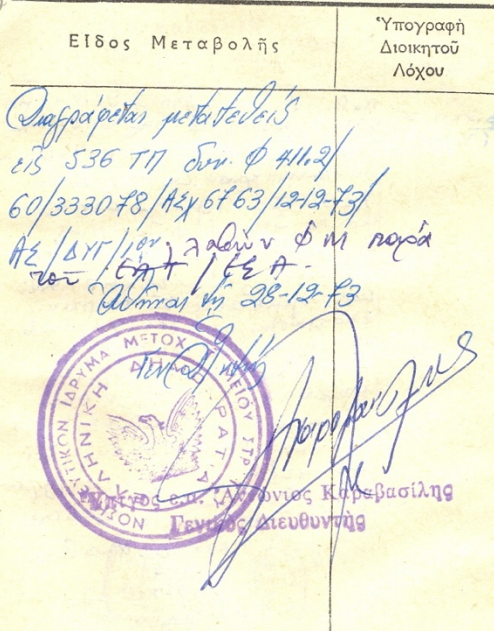 Εἶδος Μεταβολῆς
Ὑπογραφὴ
Διοικητοῦ
Λόχου
Διαγράφεται μετατεθεὶς
εἰς 536 ΤΠ δυν. Φ 411.2/
60/333078/ΑΣΧ 6763/12-12-73/
ΑΣ/ΔΥΓ/1ον λαβὼν Φ Μ παρὰ
τοῦ ΕΑΤ/ΕΣΑ.
Ἀθῆναι τῇ 28-12-73
Ὁ
ΝΟΣΗΛΕΥΤΙΚΟΝ ΙΔΡΥΜΑ ΜΕΤΟΧ ΤΑΜΕΙΟΥ ΣΤΡ
ΕΛΛΗΝΙΚΗ ΔΗΜΟΚΡΑΤΙΑ
Ἀντώνιος Καραβασίλης
Γενικὸς Διευθυντὴς